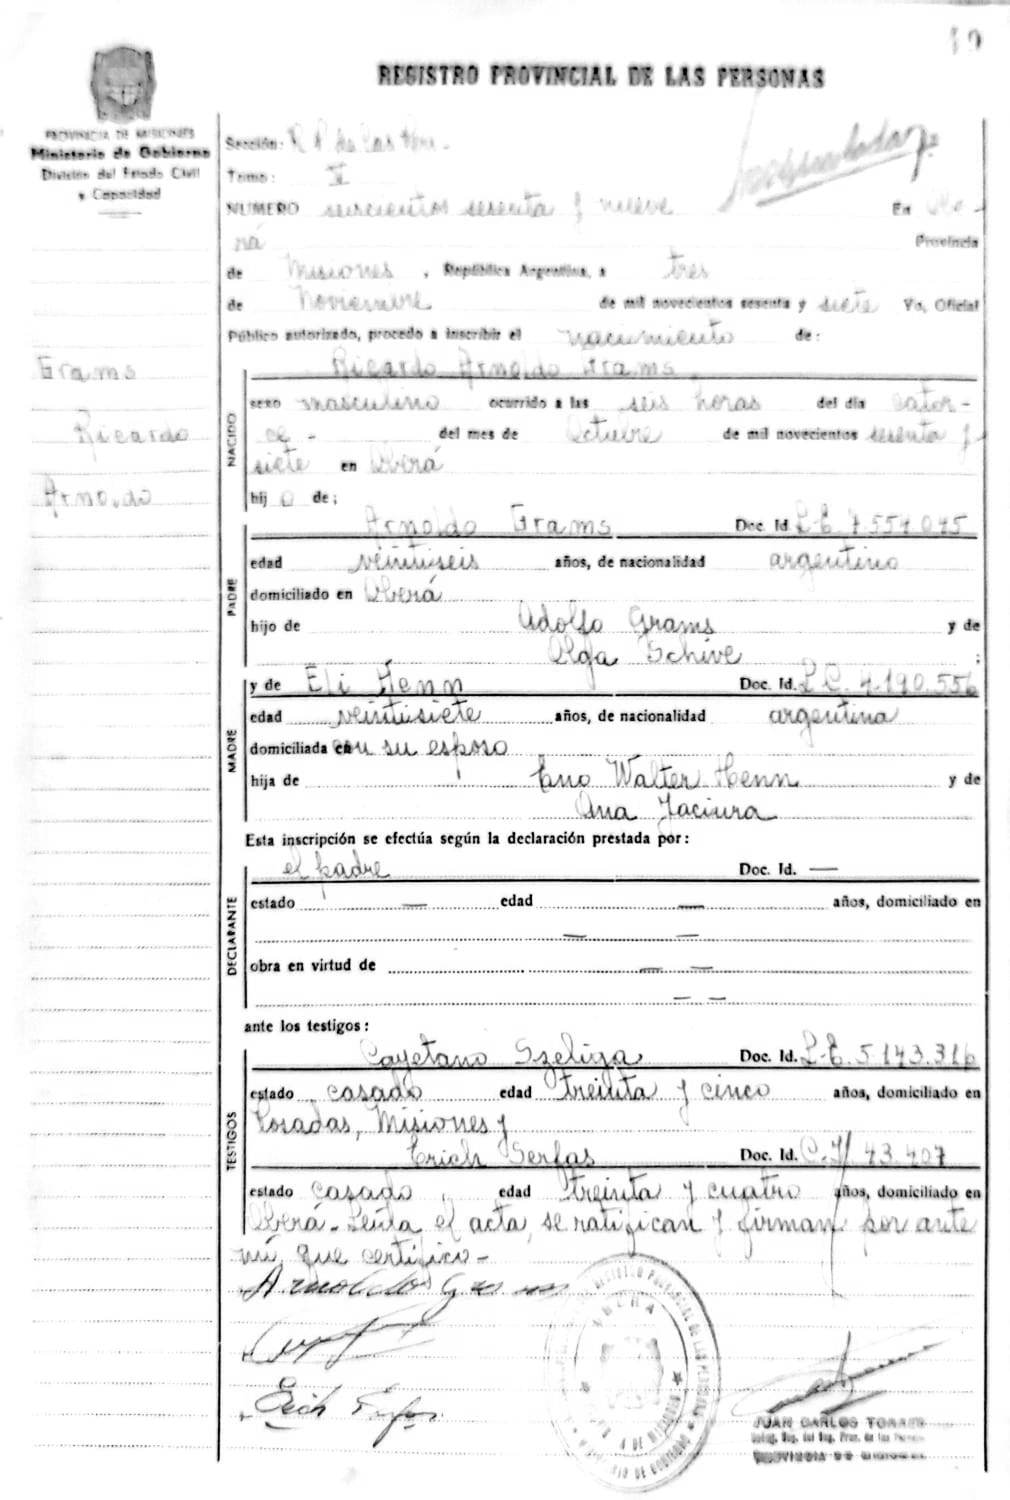 19
REGISTRO PROVINCIAL DE LAS PERSONAS
PROVINCIA DE MISIONES
Ministerio de Gobierno
División del Estado Civil
y Capacidad
Sección: R. P. de las Per.
Tomo: II
NUMERO seiscientos sesenta y nueve En Obe-
rá Provincia
de Misiones, República Argentina, a tres
de Noviembre de mil novecientos sesenta y siete Yo, Oficial
Público autorizado, procedo a inscribir el nacimiento de:
Grams
Ricardo
Arnoldo
NACIDO
Ricardo Arnoldo Grams
sexo masculino ocurrido a las seis horas del día cator-
ce - del mes de Octubre de mil novecientos sesenta y
siete en Oberá
hijo de;
PADRE
Arnoldo Grams Doc. Id. L.E. 7.554.045
edad veintiseis años, de nacionalidad argentino
domiciliado en Oberá
hijo de Adolfo Grams y de
Olga Schive ;
MADRE
y de Eli Henn Doc. Id. L.C. 4.190.556
edad veintisiete años, de nacionalidad argentina
domiciliada con su esposo
hija de Eno Walter Henn y de
Ana Jaciura
Esta inscripción se efectúa según la declaración prestada por:
DECLARANTE
el padre Doc. Id. —
estado — edad — años, domiciliado en
— —
obra en virtud de — —
— —
ante los testigos:
TESTIGOS
Cayetano Szeliga Doc. Id. L.E. 5.143.316
estado casado edad treinta y cinco años, domiciliado en
Posadas, Misiones y
Erich Serfas Doc. Id. C.I. 43.407
estado casado, edad treinta y cuatro años, domiciliado en
Oberá - Leída el acta, se ratifican y firman por ante
mí, que certifico -
Arnoldo Grams
Erich Serfas
OBERA
JUAN CARLOS TORRES
PROVINCIA DE MISIONES